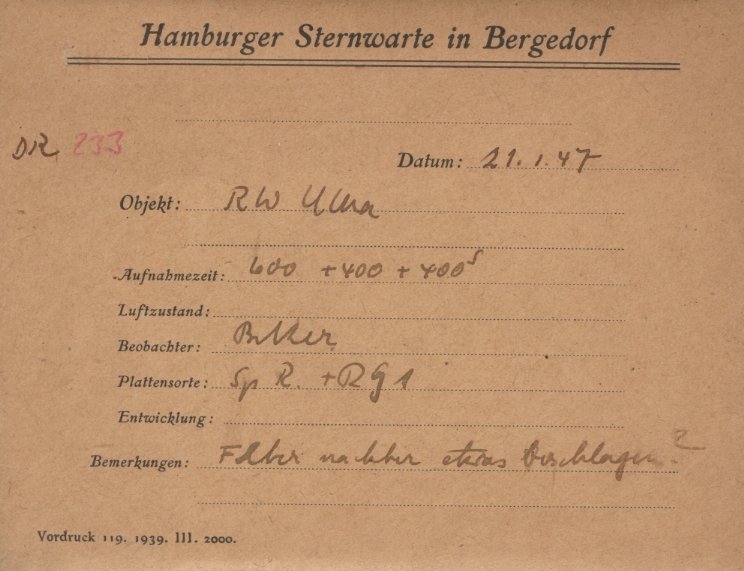 Hamburger Sternwarte in Bergedorf
DR 233
Datum: 21.1.47
Objekt: RW UMa
Aufnahmezeit: 600 + 400 + 400s
Luftzustand:
Beobachter:
Plattensorte: Sp R. + RG1
Entwicklung:
Bemerkungen: nachher etwas beschlagen?
Vordruck 119. 1939. III. 2000.